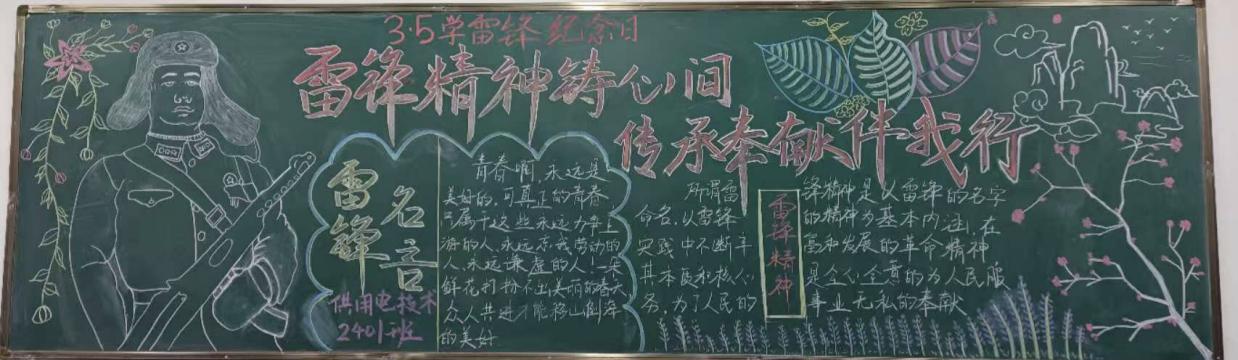 3·5学雷锋纪念日
雷锋精神铸心间
传承奉献伴我行
雷锋
名言
供用电技术
2401班
青春啊,永远是
美好的,可真正的青春
只属于这些永远力争上
游的人,永远忘我劳动的
人,永远谦虚的人!一朵
鲜花打扮不出美丽的春天
众人共进才能移山倒海
的美好
雷锋精神
所谓雷锋精神是以雷锋的名字
命名,以雷锋的精神为基本内涵,在
实践中不断丰富和发展的革命精神
其本质和核心是全心全意的为人民服
务,为了人民的事业无私的奉献